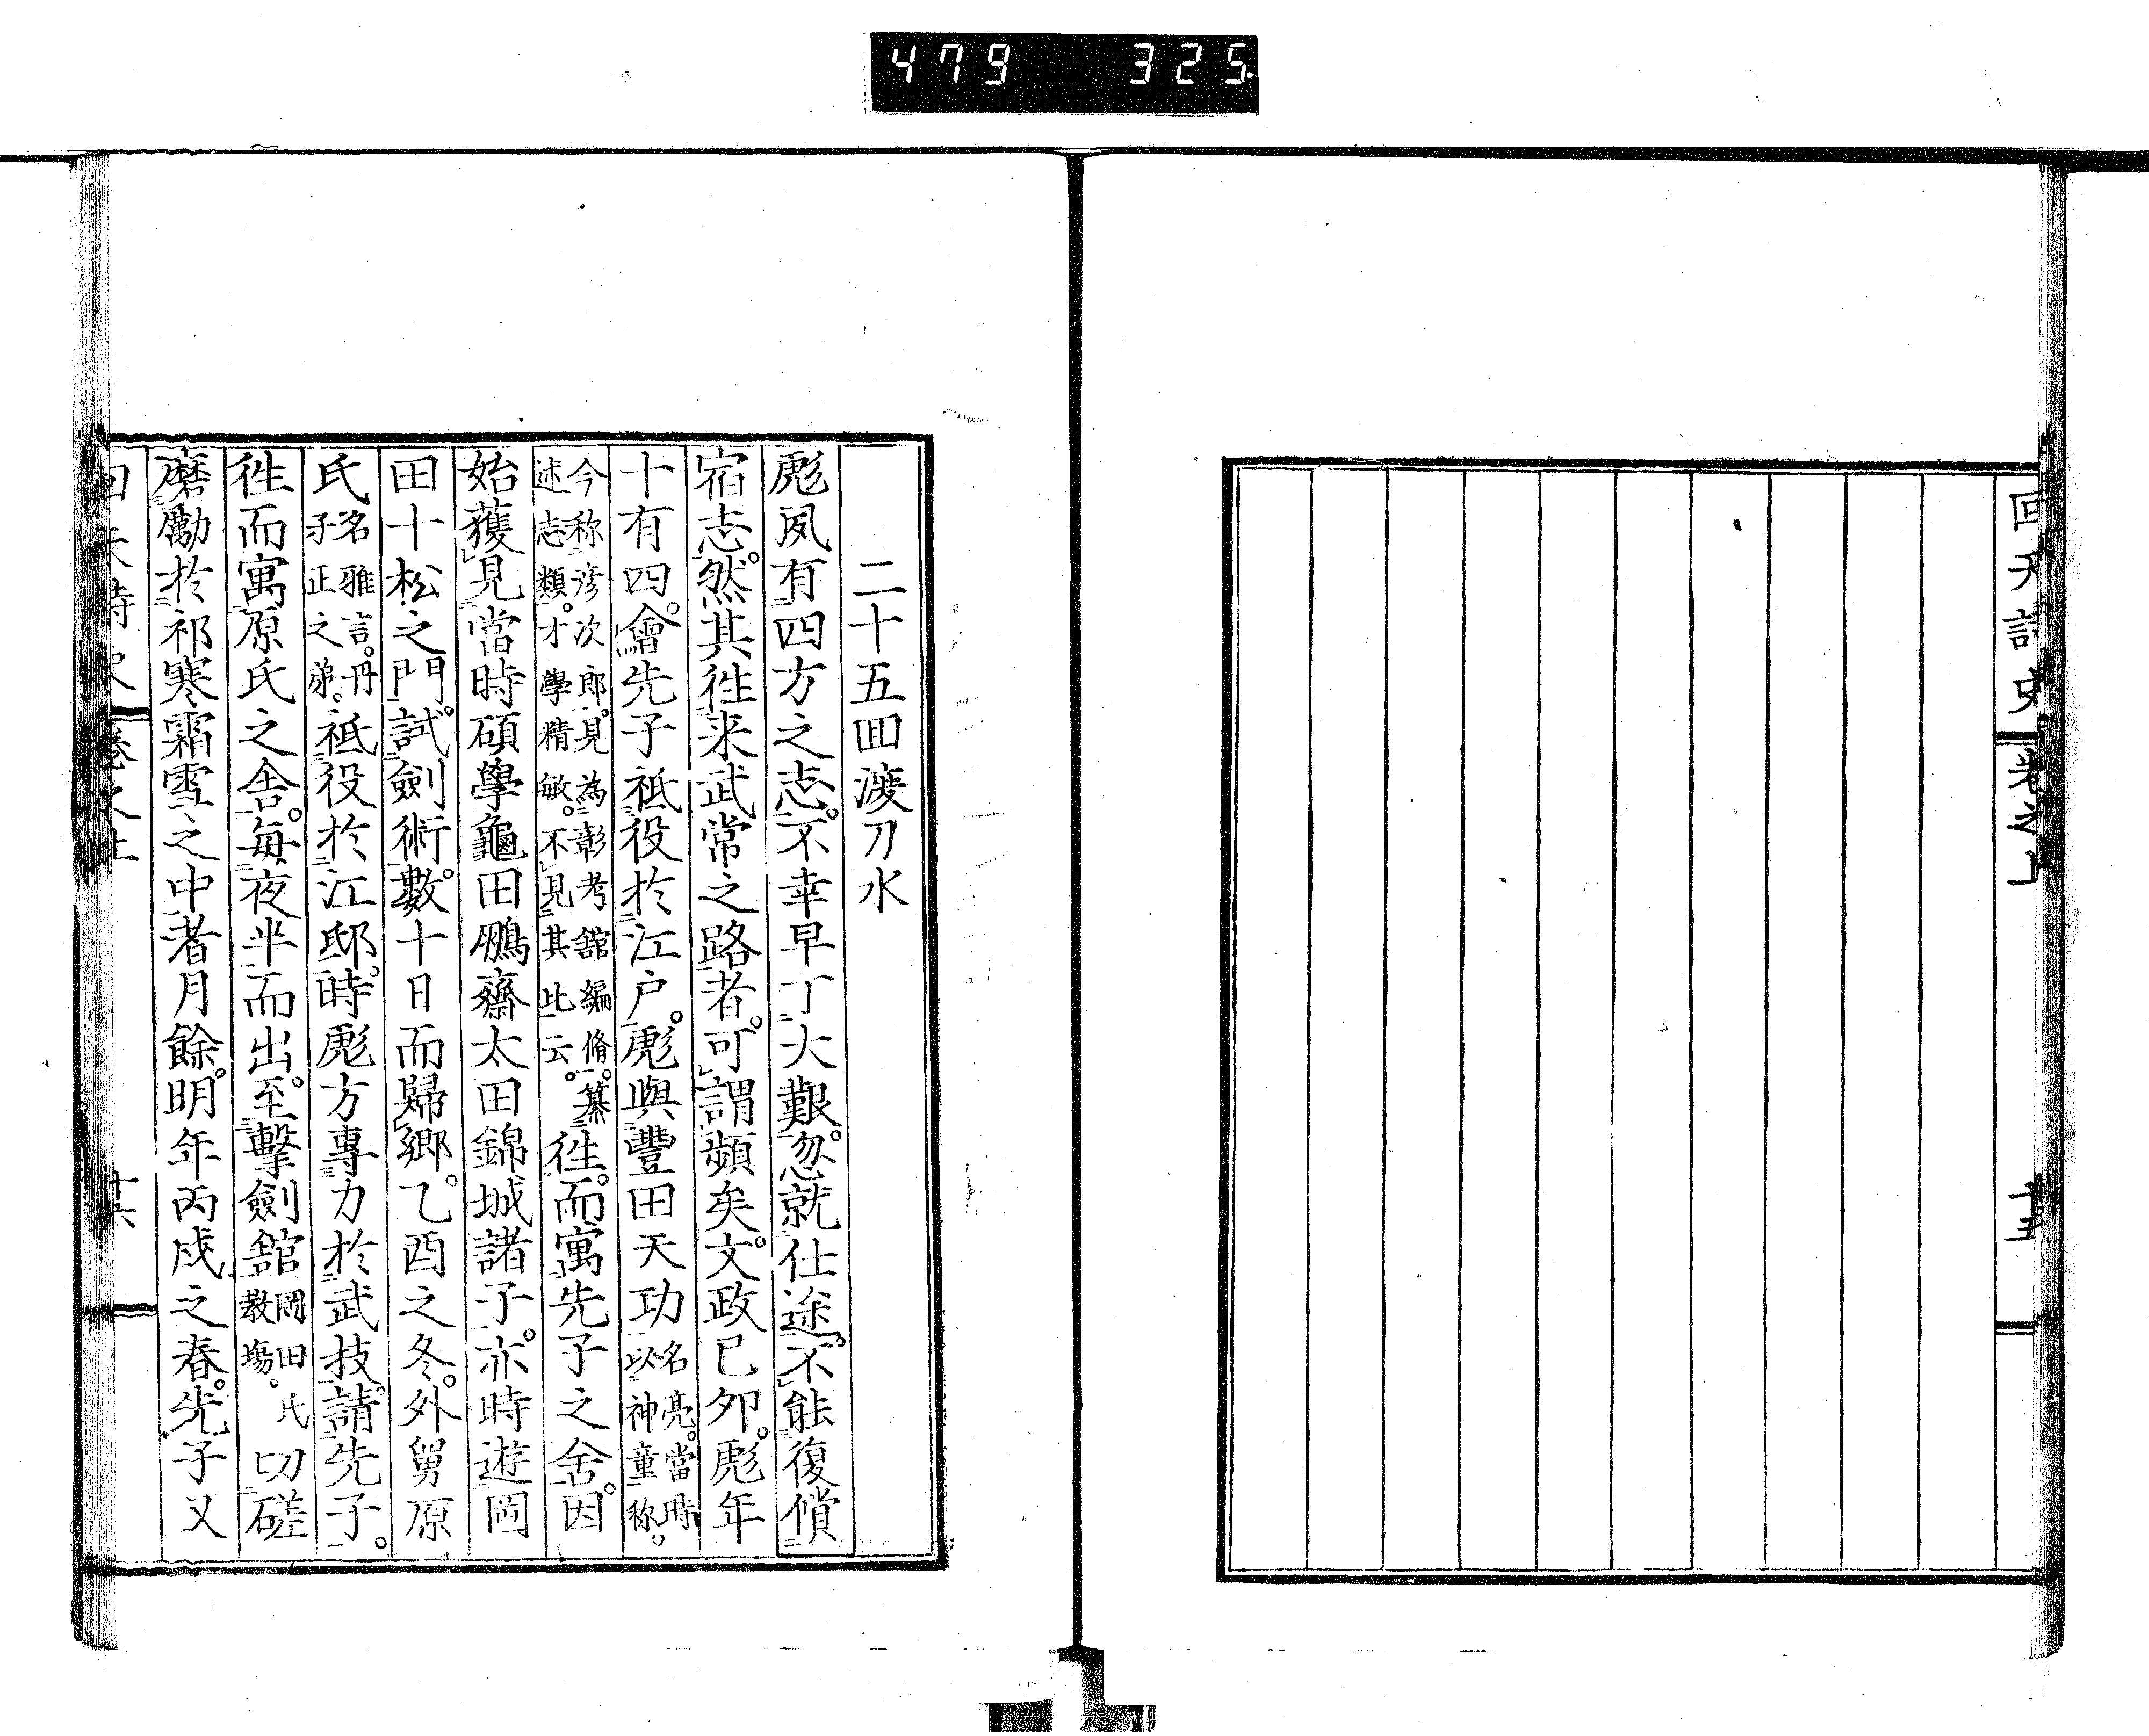 479 325
回天詩史 卷之上
二十五回渡刀水
彪夙有四方之志。不幸早丁大艱。忽就仕途。不能復償
宿志。然其徃来武常之路者。可謂頻矣。文政己夘。彪年
十有四。會先子祗役於江戸。彪與豐田天功名亮。當時以神童称。
今称彦次郎。見為彰考舘編脩。纂述志類。才學精敏。不見其比云。徃。而寓先子之舍。因
始獲見當時碩學龜田鵬齋太田錦城諸子。亦時遊岡
田十松之門。試劍術。數十日而歸郷。乙酉之冬。外舅原
氏名雅言。丹子正之弟。祗役於江邸。時彪方專力於武技。請先子。
徃而寓原氏之舍。每夜半而出。至擊劍舘岡田氏教塲。切磋
磨勵於祁寒霜雪之中者月餘。明年丙戌之春。先子又
回天詩史 卷之上 廿六